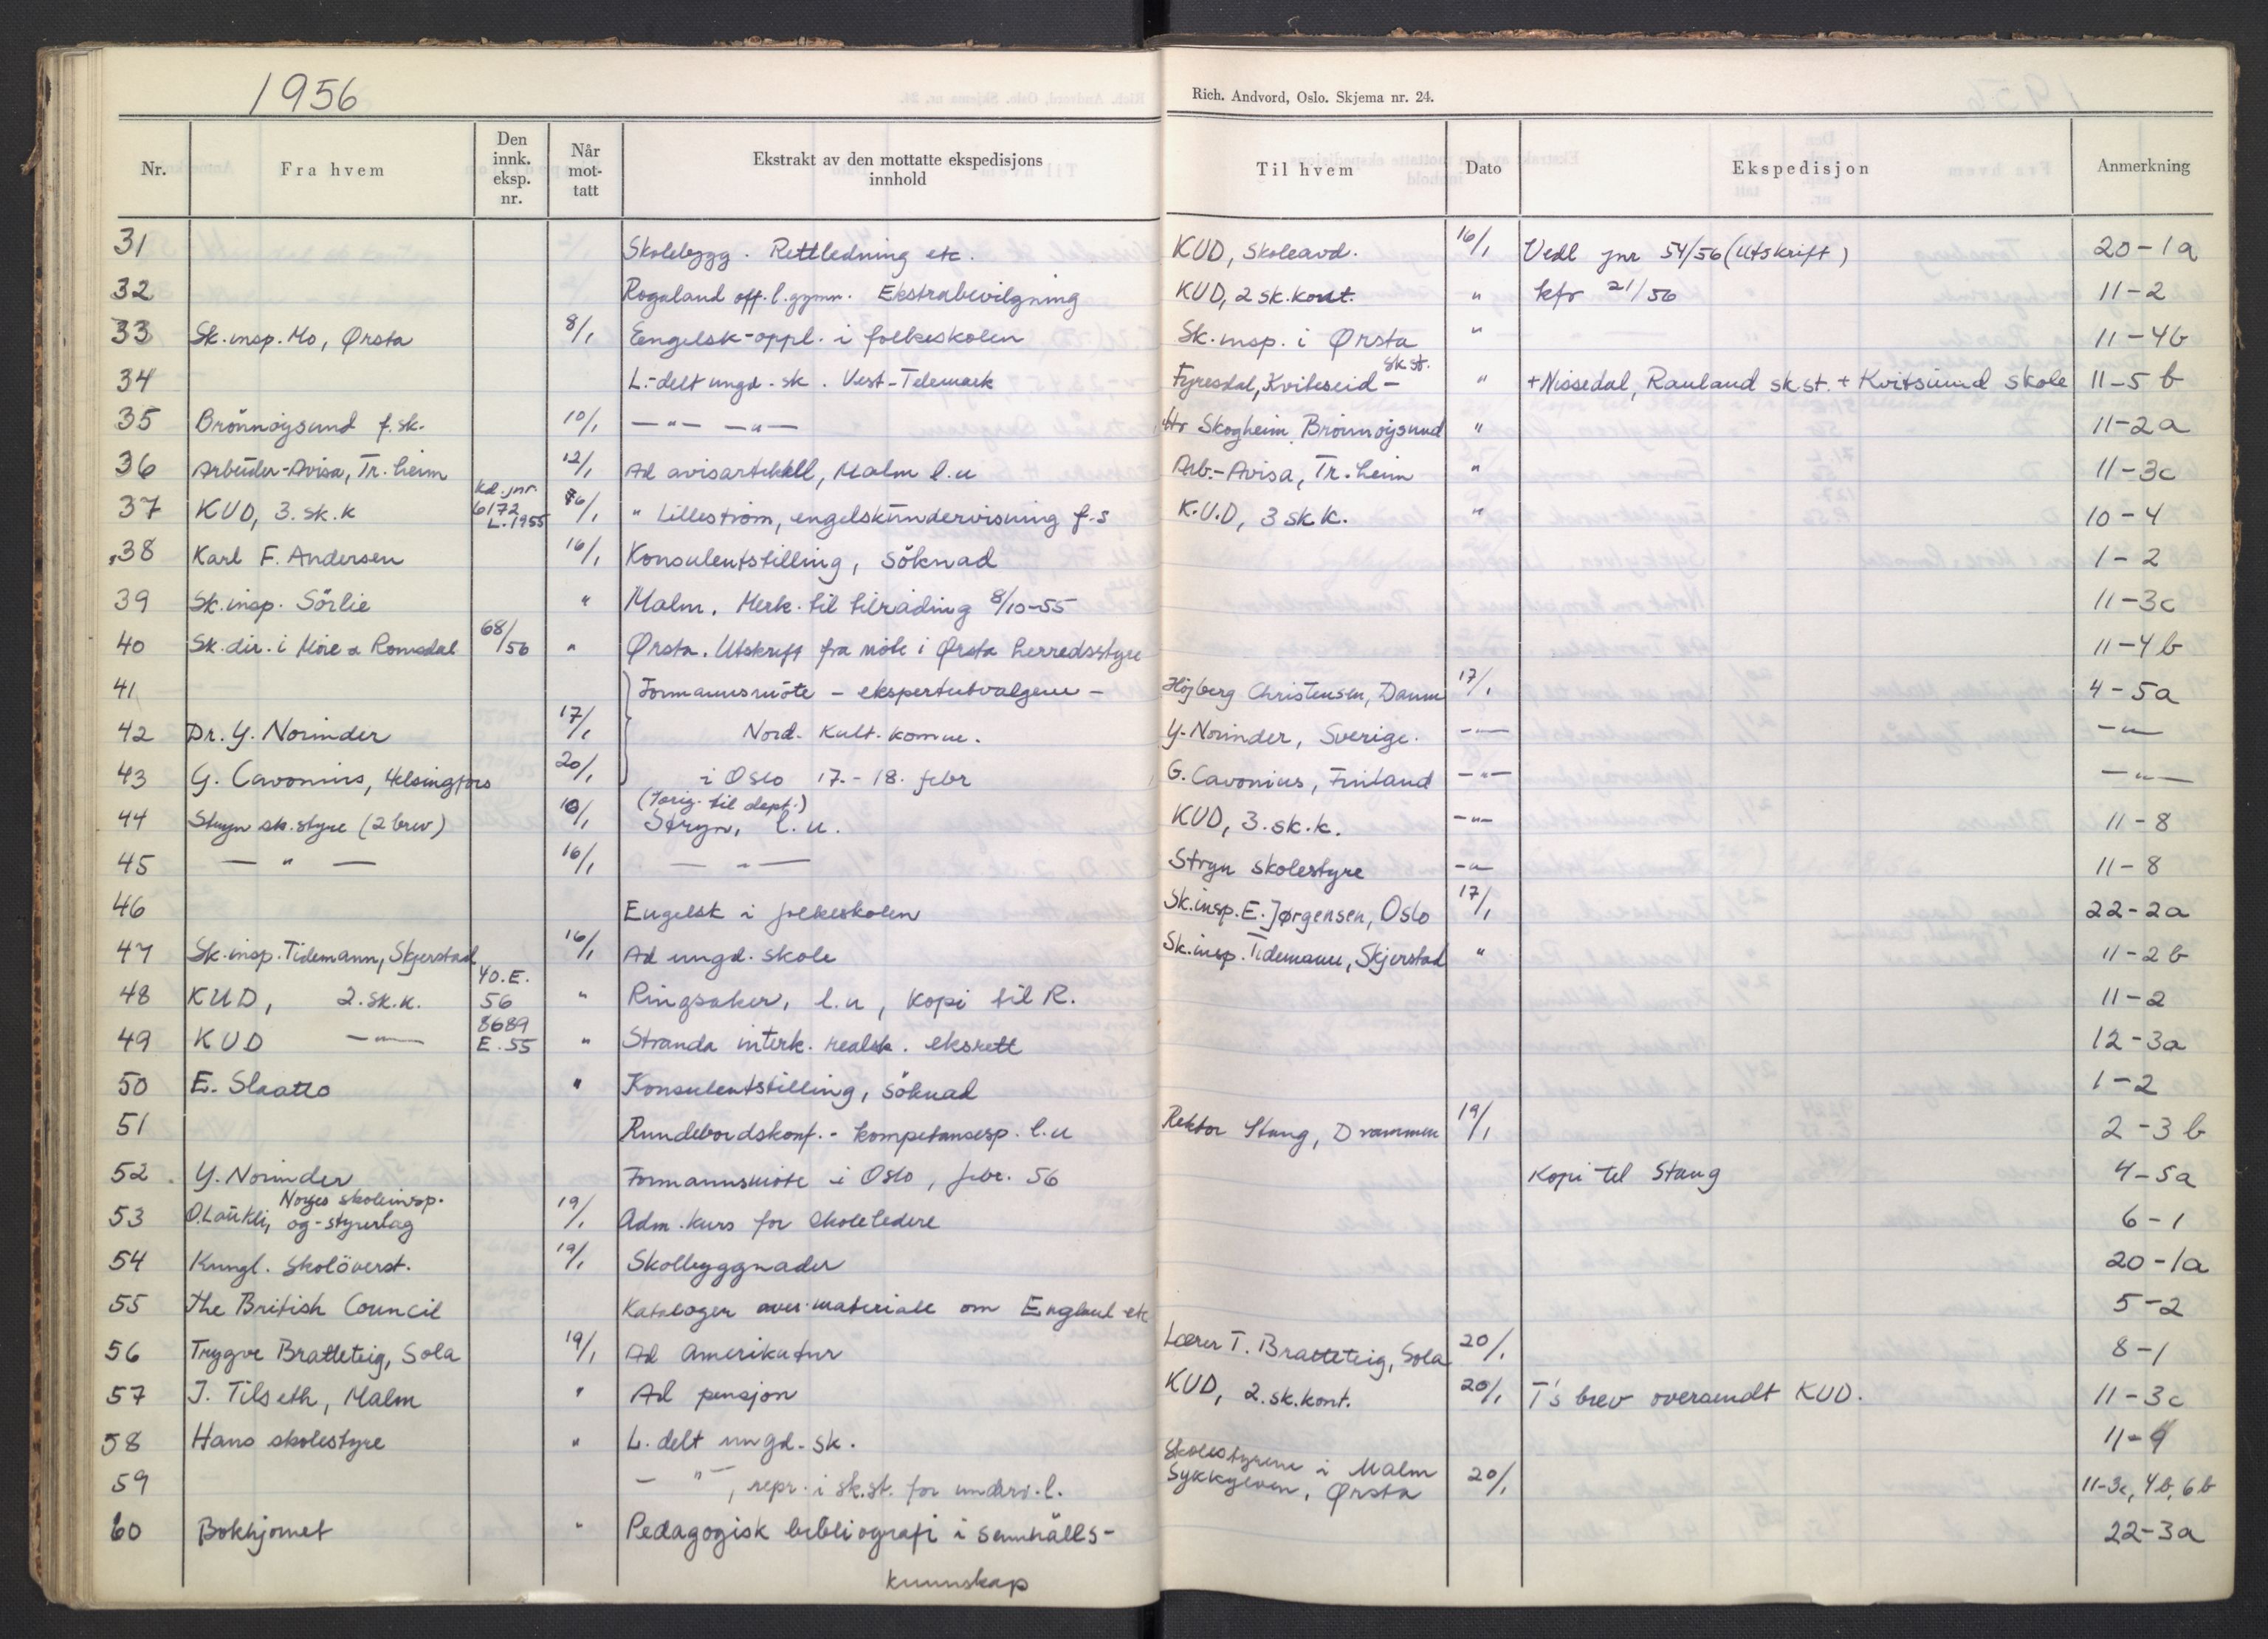 1956
Rich. Andvord, Oslo. Skjema nr. 24.
Nr. Fra hvem Den innk. eksp. nr. Når mot-tatt Ekstrakt av den mottatte ekspedisjons innhold Til hvem Dato Ekspedisjon Anmerkning
31 Skolebygg. Rettledning etc. KUD, Skoleavd. 16/1 Vedl jnr 54/56 (Utskrift) 20-1a
32 Rogaland off. l. gymn. Ekstrabevilgning KUD, 2 sk.kont. " kfr 21/56 11-2
33 Sk.insp. Mo, Ørsta 8/1 Engelsk-oppl. i folkeskolen Sk.insp. i Ørsta " 11-4b
34 L.-delt ungd.-sk. Vest-Telemark Fyresdal, Kviteseid- sk.st. " +Nissedal, Rauland sk.st. + Kvitsund skole 11-5b
35 Brönnöysund f.sk. 10/1 —"— —"— Hr Skogheim, Brönnöysund " 11-2a
36 Arbeider-Avisa, Tr.heim 12/1 Ad avisartikkel, Malm l.u Arb.-Avisa, Tr.heim " 11-3c
37 KUD, 3.sk.k kd.jnr 6172 L.1955 16/1 " Lilleström, engelskundervisning f.s K.U.D, 3 sk.k. " 10-4
38 Karl F. Andersen 16/1 Konsulentstilling, söknad 1-2
39 Sk.insp. Sörlie " Malm. Merk. til tilråding 8/10-55 11-3c
40 Sk.dir. i Möre & Romsdal 68/56 " Ørsta. Utskrift fra möte i Ørsta herredsstyre 11-4b
41 Formannsmöte - ekspertutvalgene - Höjberg Christensen, Danm 17/1 4-5a
42 Dr. Y. Norinder 17/1 Nord. Kult. komm. Y. Norinder, Sverige. —"— —"—
43 G. Cavonius, Helsingfors 20/1 i Oslo 17.-18. febr G. Cavonius, Finland —"— —"—
44 Stryn sk.styre (2 brev) 10/1 (1 orig. til dept.) Stryn, l.u. KUD, 3.sk.k. —"— 11-8
45 — " — 16/1 — " — Stryn skolestyre —"— 11-8
46 Engelsk i folkeskolen Sk.insp. E. Jørgensen, Oslo 17/1 22-2a
47 Sk.insp. Tidemann, Skjerstad 16/1 Ad ungd.skole Sk.insp. Tidemann, Skjerstad " 11-2b
48 KUD, 2.sk.k. 40.E. 56 " Ringsaker, l.u, kopi til R. 11-2
49 KUD —"— 8689 E.55 " Stranda interk. realsk. eksrett 12-3a
50 E. Slaatto " Konsulentstilling, söknad 1-2
51 Rundebordskonf. - kompetansesp. l.u Rektor Stang, Drammen 19/1 2-3b
52 Y. Norinder Formannsmöte i Oslo, febr. 56 Kopi til Stang 4-5a
53 O. Laukli, Norges skoleinsp. og -styrerlag 19/1 Adm. kurs for skoleledere 6-1
54 Kungl. Skolöverst. 19/1 Skolbyggnader 20-1a
55 The British Council Kataloger over materiale om England etc 5-2
56 Trygve Bratteteig, Sola 19/1 Ad Amerikatur Lærer T. Bratteteig, Sola 20/1 8-1
57 J. Tilseth, Malm " Ad pensjon KUD, 2.sk.kont. 20/1 T's brev oversendt KUD. 11-3c
58 Hans skolestyre " L. delt ungd.-sk. 11-9
59 — " —, repr. i sk.st. for underv.l. Skolestyrene i Malm Sykkylven, Ørsta 20/1 11-3c, 4b, 6b
60 Bokhjørnet " Pedagogisk bibliografi i samhälls-
kunnskap 22-3a